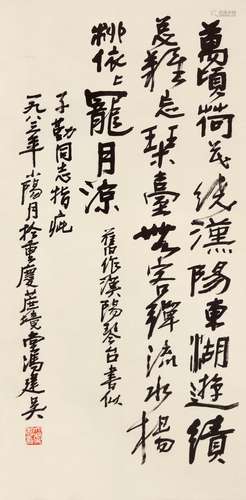 萬頃荷花繞漢陽東湖遊績
甚難忘琴臺世客彈流水楊
柳依依罷月涼
舊作漢陽琴台書似
子勤同志指疵
一九八三年小陽月於重慶蔗境堂馮建吳